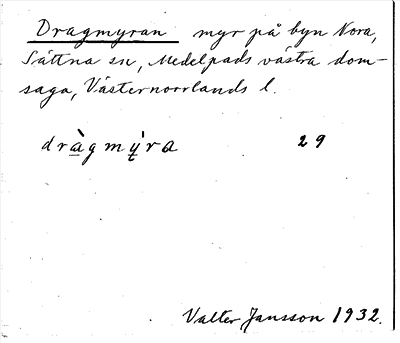 Dragmyran myr på byn Nora,
Sättna sn, Medelpads västra dom-
saga, Västernorrlands l.
dràgmýra 29
Valter Jansson 1932.